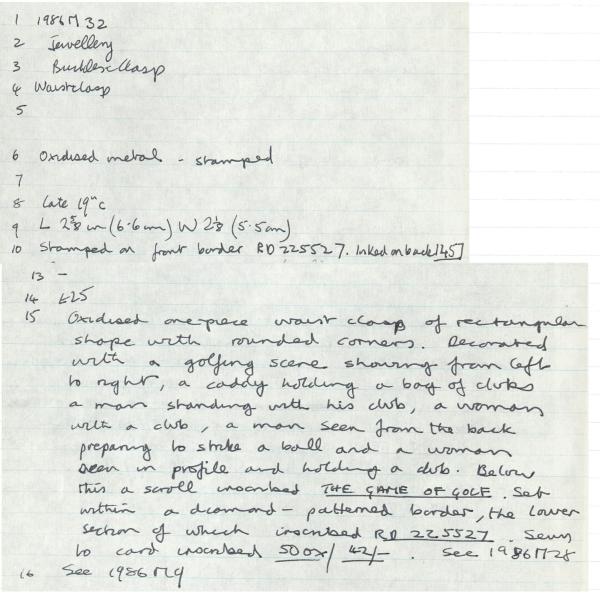 1 1986 M 32
2 Jewellery
3 Buckles & Clasp
4 Waist clasp
5
6 Oxidised metal - stamped
7
8 Late 19th c
9 L 2 5/8 in (6.6 cm) W 2 1/8 (5.5 cm)
10 Stamped on front border RD 225527. Inked on back 145
13 -
14 £25
15 Oxidised one-piece waist clasp of rectangular
shape with rounded corners. Decorated
with a golfing scene showing from left
to right, a caddy holding a bag of clubs
a man standing with his club, a woman
with a club, a man seen from the back
preparing to strike a ball and a woman
seen in profile and holding a club. Below
this a scroll inscribed THE GAME OF GOLF. Set
within a diamond-patterned border, the lower
section of which inscribed RD 225527. Sewn
to card inscribed 500x/ 42/-. See 1986 M 28
16 See 1986 M 9